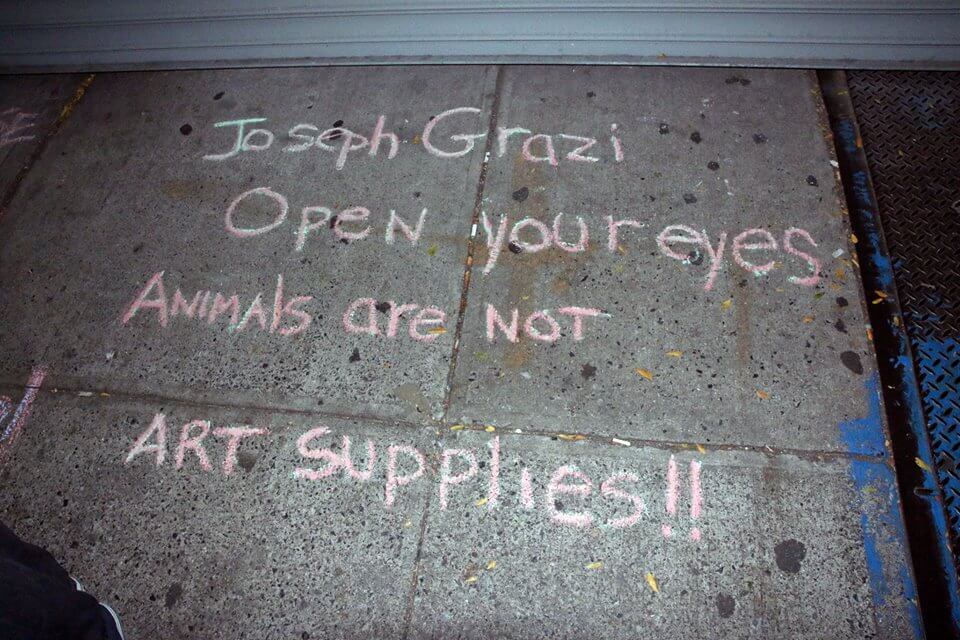 Joseph Grazi
Open your eyes
ANIMAls are NOT
ART Supplies!!